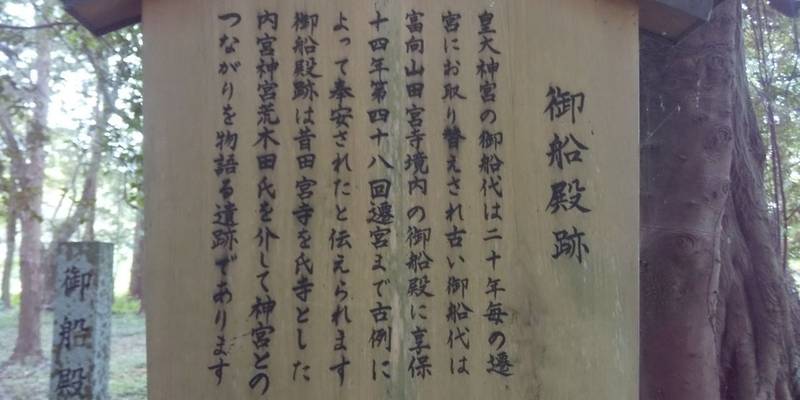 御船殿跡
皇大神宮の御船代は二十年毎の遷
宮にお取り替えされ古い御船代は
富向山田宮寺境内の御船殿に享保
十四年第四十八回遷宮まで古例に
よって奉安されたと伝えられます
御船殿跡は昔田宮寺を氏寺とした
内宮神宮荒木田氏を介して神宮との
つながりを物語る遺跡であります
御船殿